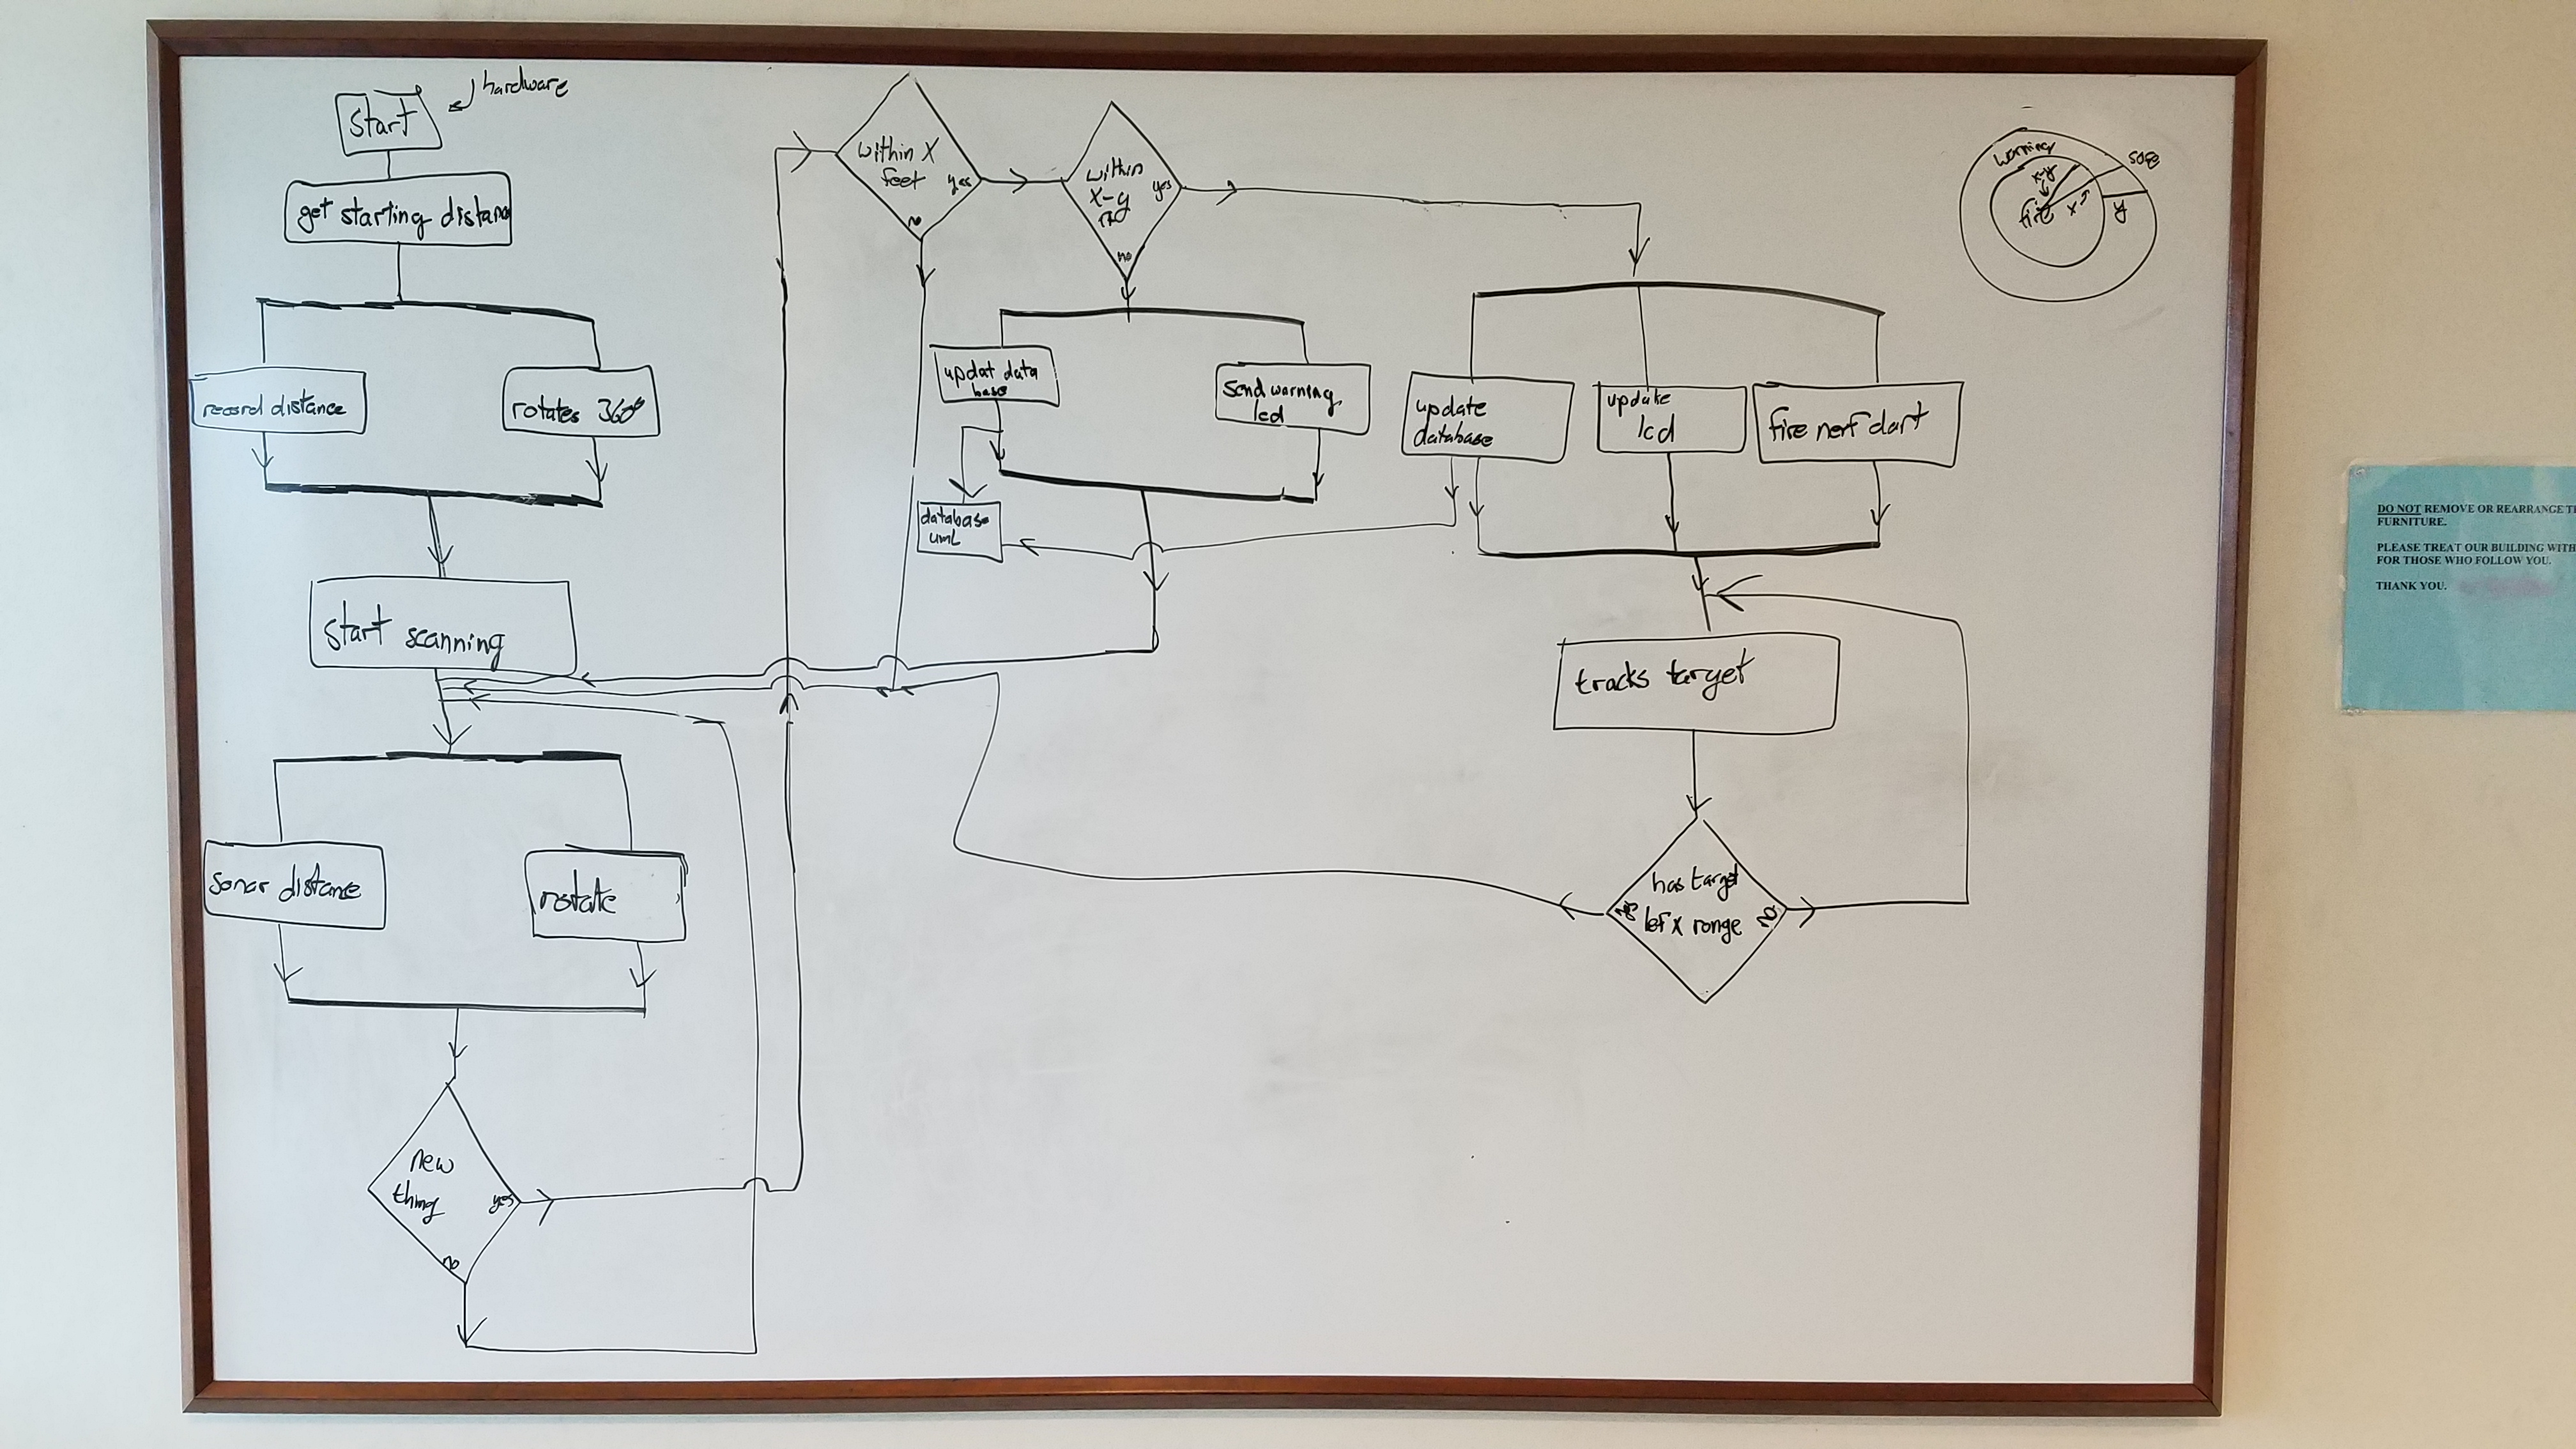 hardware
Start
get starting distanc
record distance
rotates 360°
start scanning
sonar distance
rotate
new
thing
yes
no
within X
feet
yes
no
within
X-y
yes
no
updat data
base
send warning
lcd
database
uml
update
database
update
lcd
fire nerf dart
tracks target
has target
lef x range
yes
no
warning
safe
x-y
fire
x
y
DO NOT REMOVE OR REARRANGE
FURNITURE.
PLEASE TREAT OUR BUILDING WITH
FOR THOSE WHO FOLLOW YOU.
THANK YOU.